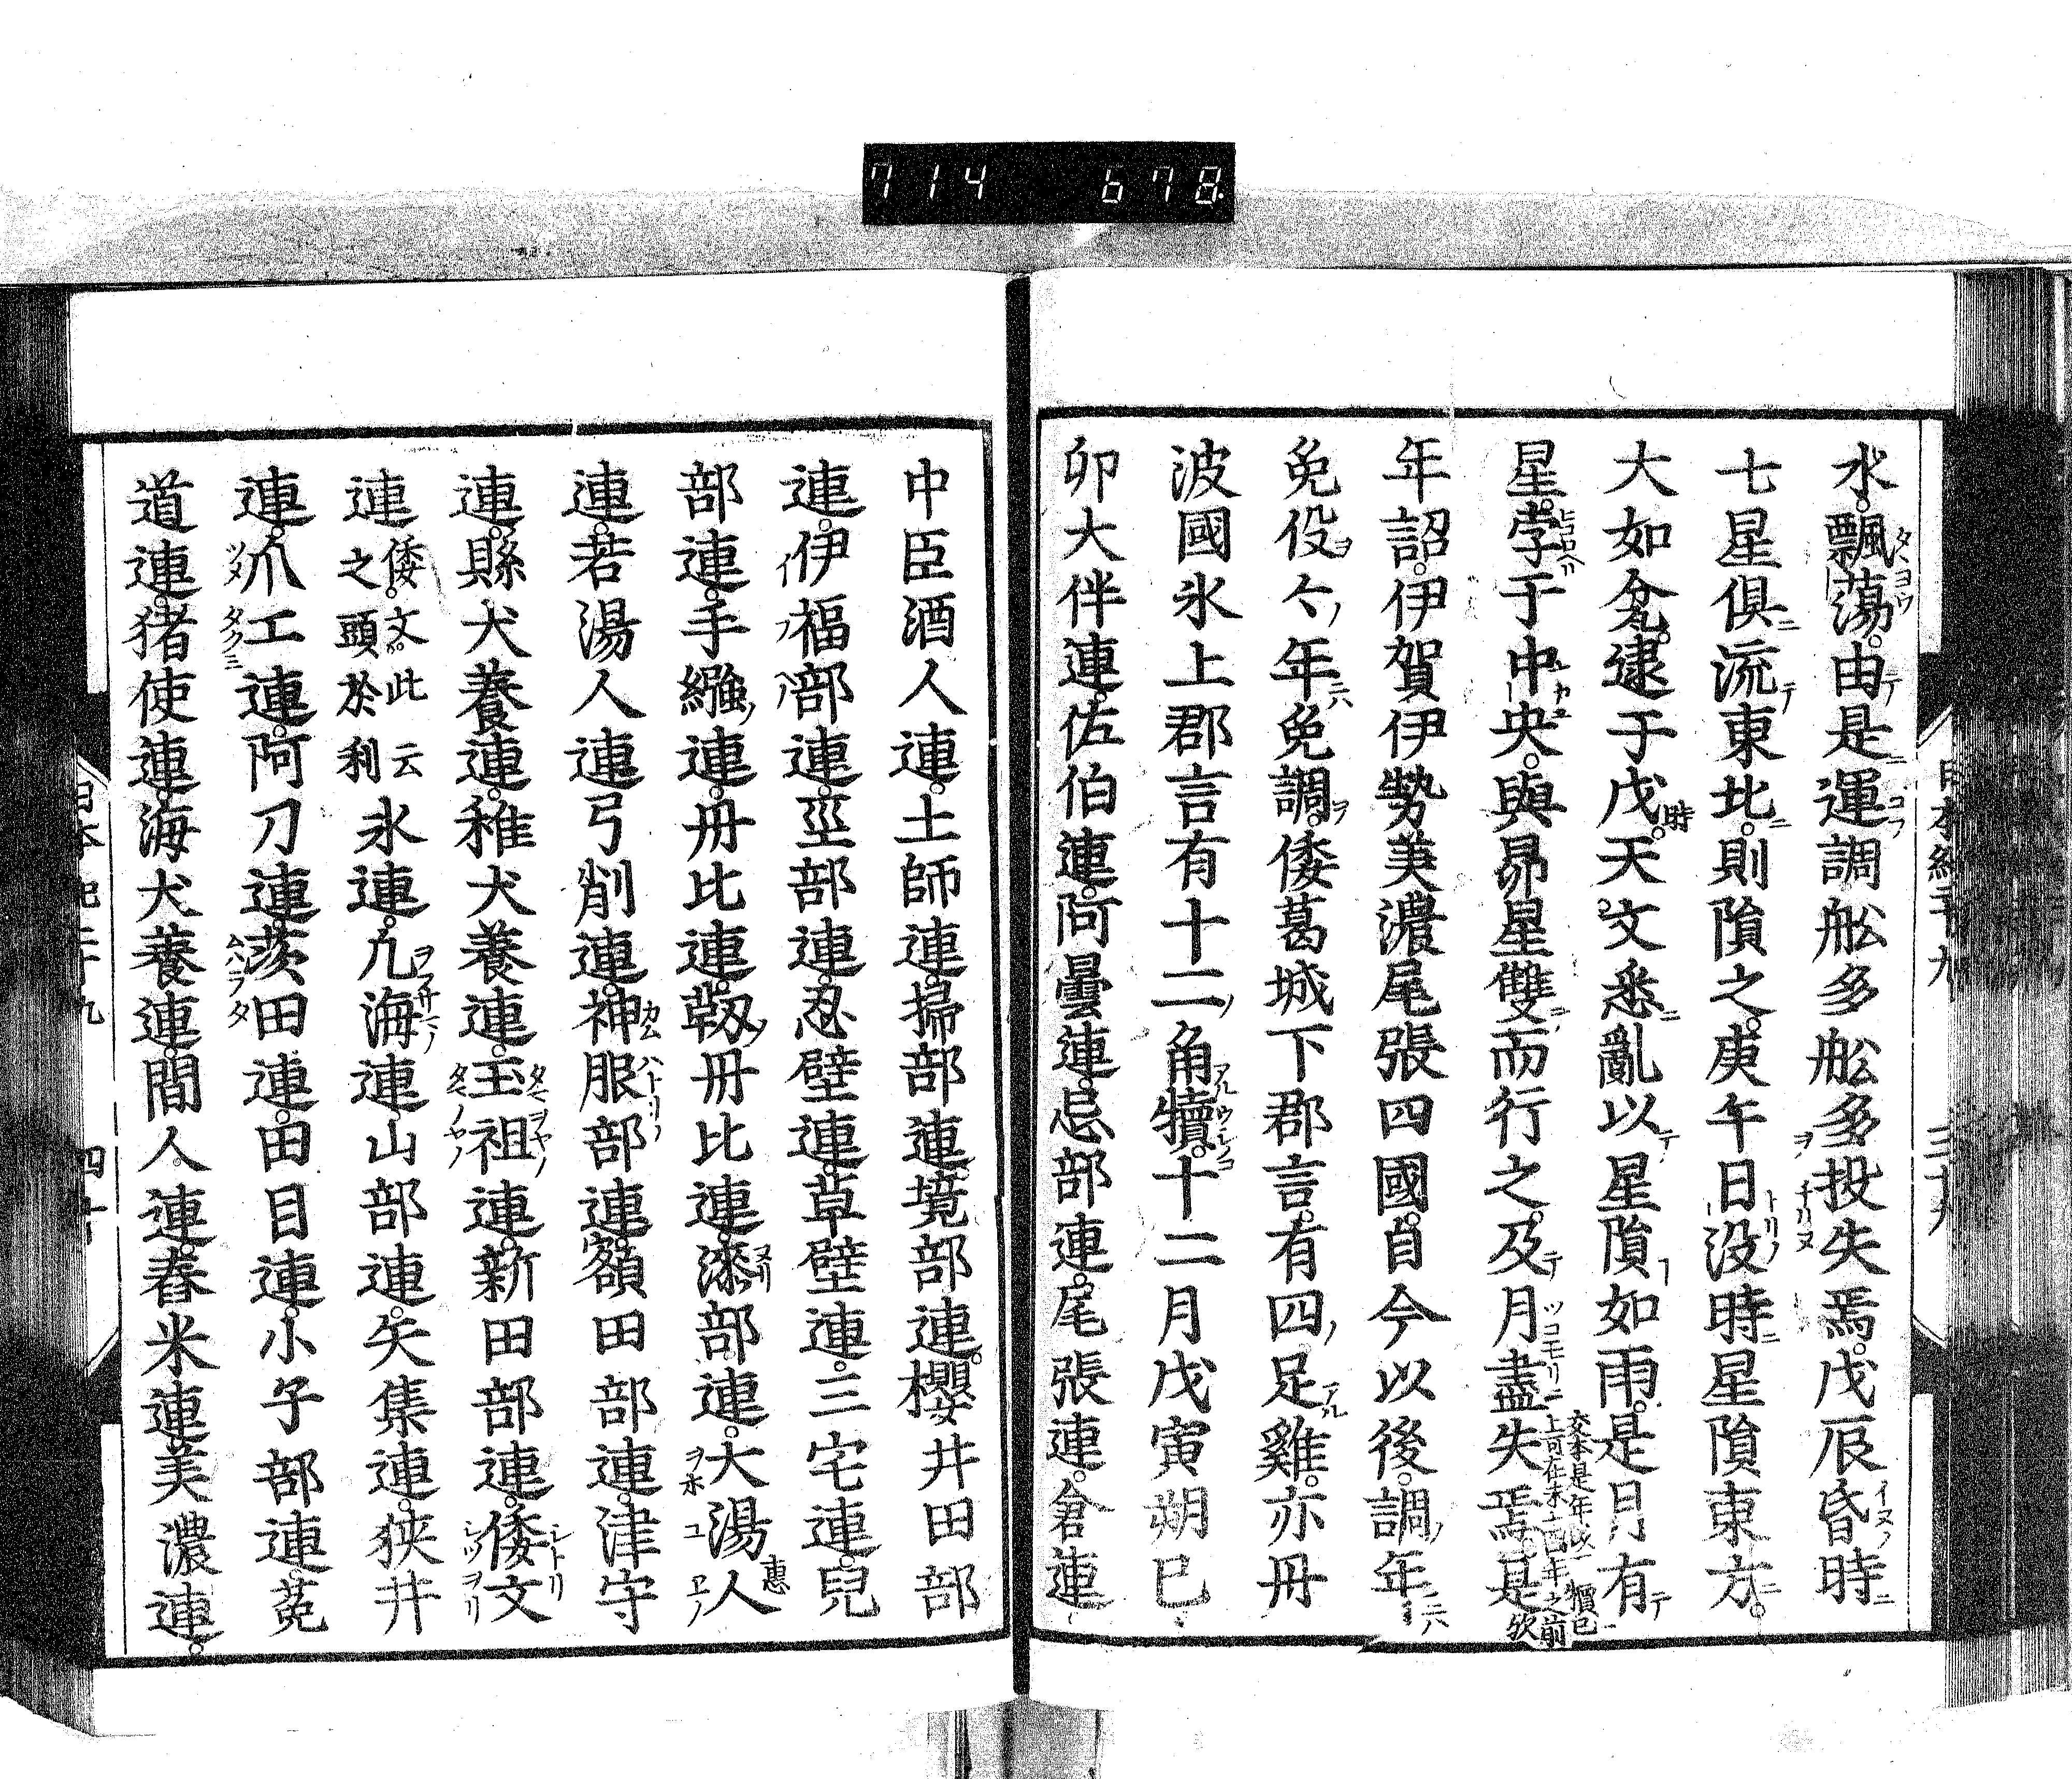 714 678
水飄蕩由是運調舩多舩多投失焉戊辰昏時
七星俱流東北則隕之庚午日没時星隕東方
大如瓮逮于戌天文悉亂以星隕如雨是月有
星孛于中央與昴星雙而行之及月盡失焉是
年詔伊賀伊勢美濃尾張四國自今以後調年
免役々年免調倭葛城下郡言有四足雞亦丹
波國氷上郡言有十二角犢十二月戊寅朔巳
卯大伴連佐伯連阿曇連忌部連尾張連倉連
中臣酒人連土師連掃部連境部連櫻井田部
連伊福部連巫部連忍壁連草壁連三宅連兒
部連手繦連丹比連靱丹比連漆部連大湯人
連若湯人連弓削連神服部連額田部連津守
連縣犬養連稚犬養連玉祖連新田部連倭文
連倭文此云之頭於利氷連凡海連山部連矢集連狹井
連爪工連阿刀連茨田連田目連小子部連菟
道連猪使連海犬養連間人連舂米連美濃連